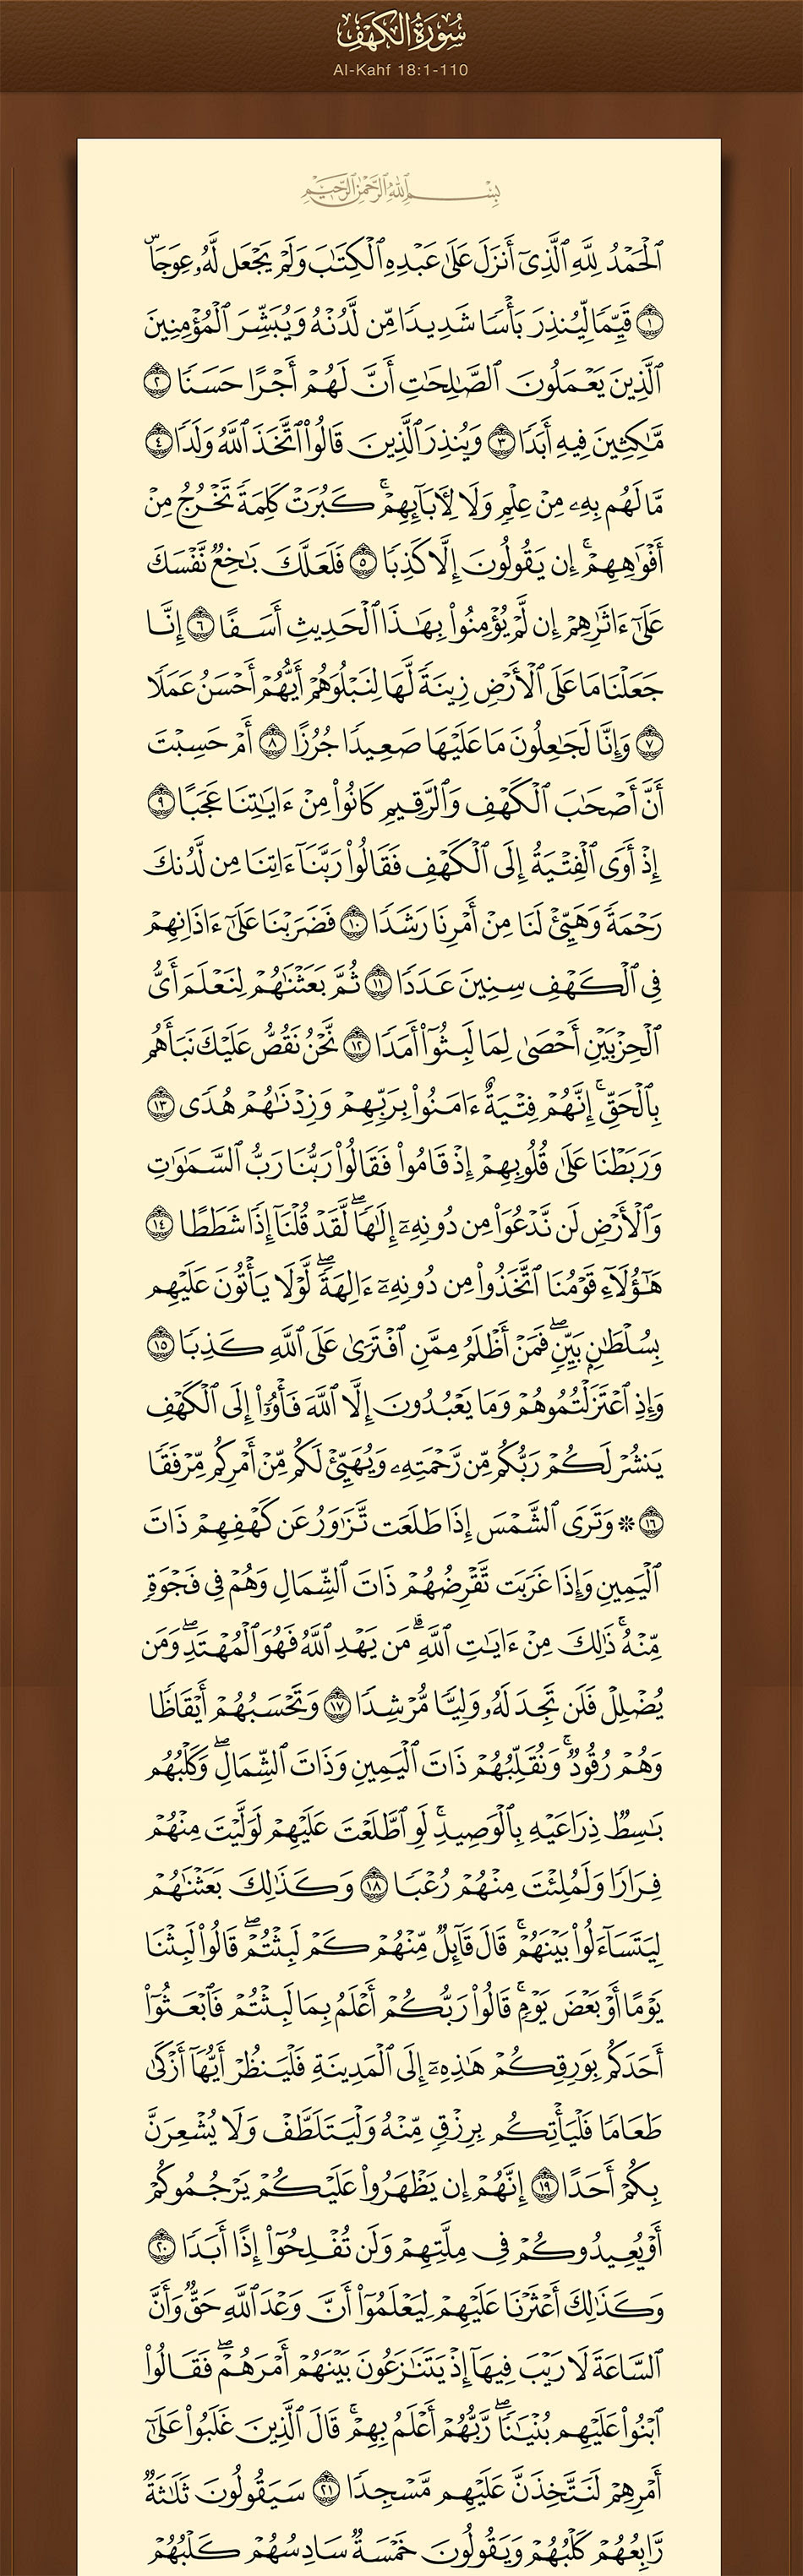 سُورَةُ الْكَهْفِ
Al-Kahf 18:1-110
بِسْمِ ٱللَّهِ ٱلرَّحْمَٰنِ ٱلرَّحِيمِ
ٱلْحَمْدُ لِلَّهِ ٱلَّذِىٓ أَنزَلَ عَلَىٰ عَبْدِهِ ٱلْكِتَٰبَ وَلَمْ يَجْعَل لَّهُۥ عِوَجَاۜ
١ قَيِّمًا لِّيُنذِرَ بَأْسًا شَدِيدًا مِّن لَّدُنْهُ وَيُبَشِّرَ ٱلْمُؤْمِنِينَ
ٱلَّذِينَ يَعْمَلُونَ ٱلصَّٰلِحَٰتِ أَنَّ لَهُمْ أَجْرًا حَسَنًا ٢
مَّٰكِثِينَ فِيهِ أَبَدًا ٣ وَيُنذِرَ ٱلَّذِينَ قَالُوا۟ ٱتَّخَذَ ٱللَّهُ وَلَدًا ٤
مَّا لَهُم بِهِۦ مِنْ عِلْمٍ وَلَا لِءَابَآئِهِمْ ۚ كَبُرَتْ كَلِمَةً تَخْرُجُ مِنْ
أَفْوَٰهِهِمْ ۚ إِن يَقُولُونَ إِلَّا كَذِبًا ٥ فَلَعَلَّكَ بَٰخِعٌ نَّفْسَكَ
عَلَىٰٓ ءَاثَٰرِهِمْ إِن لَّمْ يُؤْمِنُوا۟ بِهَٰذَا ٱلْحَدِيثِ أَسَفًا ٦ إِنَّا
جَعَلْنَا مَا عَلَى ٱلْأَرْضِ زِينَةً لَّهَا لِنَبْلُوَهُمْ أَيُّهُمْ أَحْسَنُ عَمَلًا
٧ وَإِنَّا لَجَٰعِلُونَ مَا عَلَيْهَا صَعِيدًا جُرُزًا ٨ أَمْ حَسِبْتَ
أَنَّ أَصْحَٰبَ ٱلْكَهْفِ وَٱلرَّقِيمِ كَانُوا۟ مِنْ ءَايَٰتِنَا عَجَبًا ٩
إِذْ أَوَى ٱلْفِتْيَةُ إِلَى ٱلْكَهْفِ فَقَالُوا۟ رَبَّنَآ ءَاتِنَا مِن لَّدُنكَ
رَحْمَةً وَهَيِّئْ لَنَا مِنْ أَمْرِنَا رَشَدًا ١٠ فَضَرَبْنَا عَلَىٰٓ ءَاذَانِهِمْ
فِى ٱلْكَهْفِ سِنِينَ عَدَدًا ١١ ثُمَّ بَعَثْنَٰهُمْ لِنَعْلَمَ أَىُّ
ٱلْحِزْبَيْنِ أَحْصَىٰ لِمَا لَبِثُوٓا۟ أَمَدًا ١٢ نَّحْنُ نَقُصُّ عَلَيْكَ نَبَأَهُم
بِٱلْحَقِّ ۚ إِنَّهُمْ فِتْيَةٌ ءَامَنُوا۟ بِرَبِّهِمْ وَزِدْنَٰهُمْ هُدًى ١٣
وَرَبَطْنَا عَلَىٰ قُلُوبِهِمْ إِذْ قَامُوا۟ فَقَالُوا۟ رَبُّنَا رَبُّ ٱلسَّمَٰوَٰتِ
وَٱلْأَرْضِ لَن نَّدْعُوَا۟ مِن دُونِهِۦٓ إِلَٰهًا ۖ لَّقَدْ قُلْنَآ إِذًا شَطَطًا ١٤
هَٰٓؤُلَآءِ قَوْمُنَا ٱتَّخَذُوا۟ مِن دُونِهِۦٓ ءَالِهَةً ۖ لَّوْلَا يَأْتُونَ عَلَيْهِم
بِسُلْطَٰنٍۭ بَيِّنٍ ۖ فَمَنْ أَظْلَمُ مِمَّنِ ٱفْتَرَىٰ عَلَى ٱللَّهِ كَذِبًا ١٥
وَإِذِ ٱعْتَزَلْتُمُوهُمْ وَمَا يَعْبُدُونَ إِلَّا ٱللَّهَ فَأْوُۥٓا۟ إِلَى ٱلْكَهْفِ
يَنشُرْ لَكُمْ رَبُّكُم مِّن رَّحْمَتِهِۦ وَيُهَيِّئْ لَكُم مِّنْ أَمْرِكُم مِّرْفَقًا
١٦ ۞ وَتَرَى ٱلشَّمْسَ إِذَا طَلَعَت تَّزَٰوَرُ عَن كَهْفِهِمْ ذَاتَ
ٱلْيَمِينِ وَإِذَا غَرَبَت تَّقْرِضُهُمْ ذَاتَ ٱلشِّمَالِ وَهُمْ فِى فَجْوَةٍ
مِّنْهُ ۚ ذَٰلِكَ مِنْ ءَايَٰتِ ٱللَّهِ ۗ مَن يَهْدِ ٱللَّهُ فَهُوَ ٱلْمُهْتَدِ ۖ وَمَن
يُضْلِلْ فَلَن تَجِدَ لَهُۥ وَلِيًّا مُّرْشِدًا ١٧ وَتَحْسَبُهُمْ أَيْقَاظًا
وَهُمْ رُقُودٌ ۚ وَنُقَلِّبُهُمْ ذَاتَ ٱلْيَمِينِ وَذَاتَ ٱلشِّمَالِ ۖ وَكَلْبُهُم
بَٰسِطٌ ذِرَاعَيْهِ بِٱلْوَصِيدِ ۚ لَوِ ٱطَّلَعْتَ عَلَيْهِمْ لَوَلَّيْتَ مِنْهُمْ
فِرَارًا وَلَمُلِئْتَ مِنْهُمْ رُعْبًا ١٨ وَكَذَٰلِكَ بَعَثْنَٰهُمْ
لِيَتَسَآءَلُوا۟ بَيْنَهُمْ ۚ قَالَ قَآئِلٌ مِّنْهُمْ كَمْ لَبِثْتُمْ ۖ قَالُوا۟ لَبِثْنَا
يَوْمًا أَوْ بَعْضَ يَوْمٍ ۚ قَالُوا۟ رَبُّكُمْ أَعْلَمُ بِمَا لَبِثْتُمْ فَٱبْعَثُوٓا۟
أَحَدَكُم بِوَرِقِكُمْ هَٰذِهِۦٓ إِلَى ٱلْمَدِينَةِ فَلْيَنظُرْ أَيُّهَآ أَزْكَىٰ
طَعَامًا فَلْيَأْتِكُم بِرِزْقٍ مِّنْهُ وَلْيَتَلَطَّفْ وَلَا يُشْعِرَنَّ
بِكُمْ أَحَدًا ١٩ إِنَّهُمْ إِن يَظْهَرُوا۟ عَلَيْكُمْ يَرْجُمُوكُمْ
أَوْ يُعِيدُوكُمْ فِى مِلَّتِهِمْ وَلَن تُفْلِحُوٓا۟ إِذًا أَبَدًا ٢٠
وَكَذَٰلِكَ أَعْثَرْنَا عَلَيْهِمْ لِيَعْلَمُوٓا۟ أَنَّ وَعْدَ ٱللَّهِ حَقٌّ وَأَنَّ
ٱلسَّاعَةَ لَا رَيْبَ فِيهَآ إِذْ يَتَنَٰزَعُونَ بَيْنَهُمْ أَمْرَهُمْ ۖ فَقَالُوا۟
ٱبْنُوا۟ عَلَيْهِم بُنْيَٰنًا ۖ رَّبُّهُمْ أَعْلَمُ بِهِمْ ۚ قَالَ ٱلَّذِينَ غَلَبُوا۟ عَلَىٰٓ
أَمْرِهِمْ لَنَتَّخِذَنَّ عَلَيْهِم مَّسْجِدًا ٢١ سَيَقُولُونَ ثَلَٰثَةٌ
رَّابِعُهُمْ كَلْبُهُمْ وَيَقُولُونَ خَمْسَةٌ سَادِسُهُمْ كَلْبُهُمْ